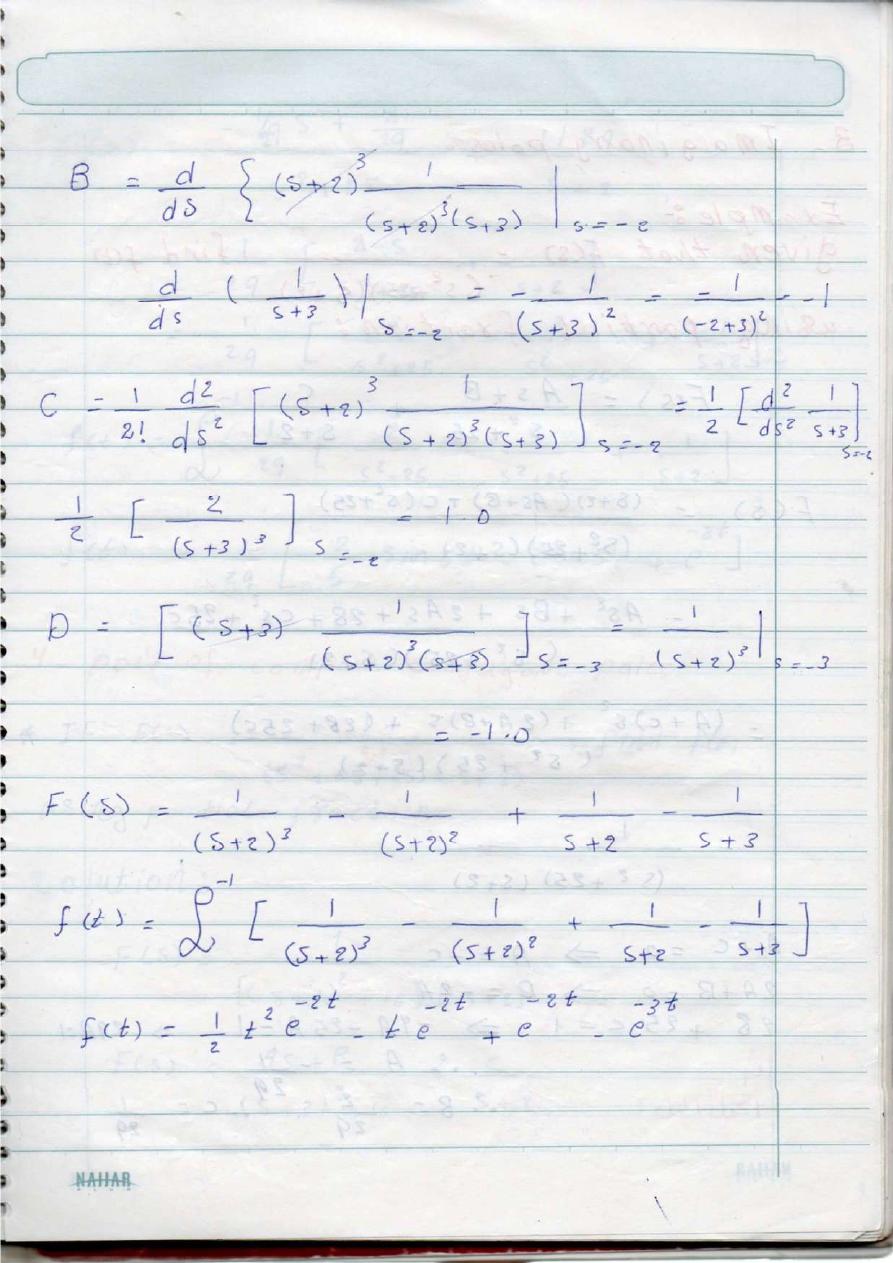 B = d/ds { (s+2)^3 1/((s+2)^3(s+3)) |_{s=-2}
d/ds ( 1/(s+3) )|_{s=-2} = - 1/(s+3)^2 = -1/(-2+3)^2 - -1
C = 1/2! d^2/ds^2 [ (s+2)^3 1/((s+2)^3(s+3)) ]_{s=-2} = 1/2 [ d^2/ds^2 1/(s+3) ]_{s=-2}
1/2 [ 2/(s+3)^3 ]_{s=-2} = 1.0
D = [ (s+3) 1/((s+2)^3(s+3)) ]_{s=-3} = 1/(s+2)^3 |_{s=-3}
= -1.0
F(s) = 1/(s+2)^3 - 1/(s+2)^2 + 1/(s+2) - 1/(s+3)
f(t) = ℒ^-1 [ 1/(s+2)^3 - 1/(s+2)^2 + 1/(s+2) - 1/(s+3) ]
f(t) = 1/2 t^2 e^{-2t} - t e^{-2t} + e^{-2t} - e^{-3t}
NAJJAR